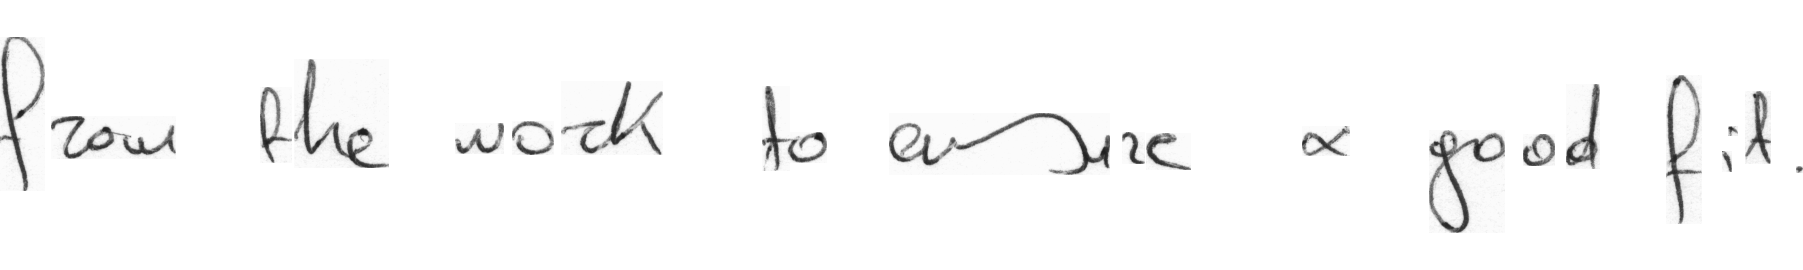 from the work to ensure a good fit.